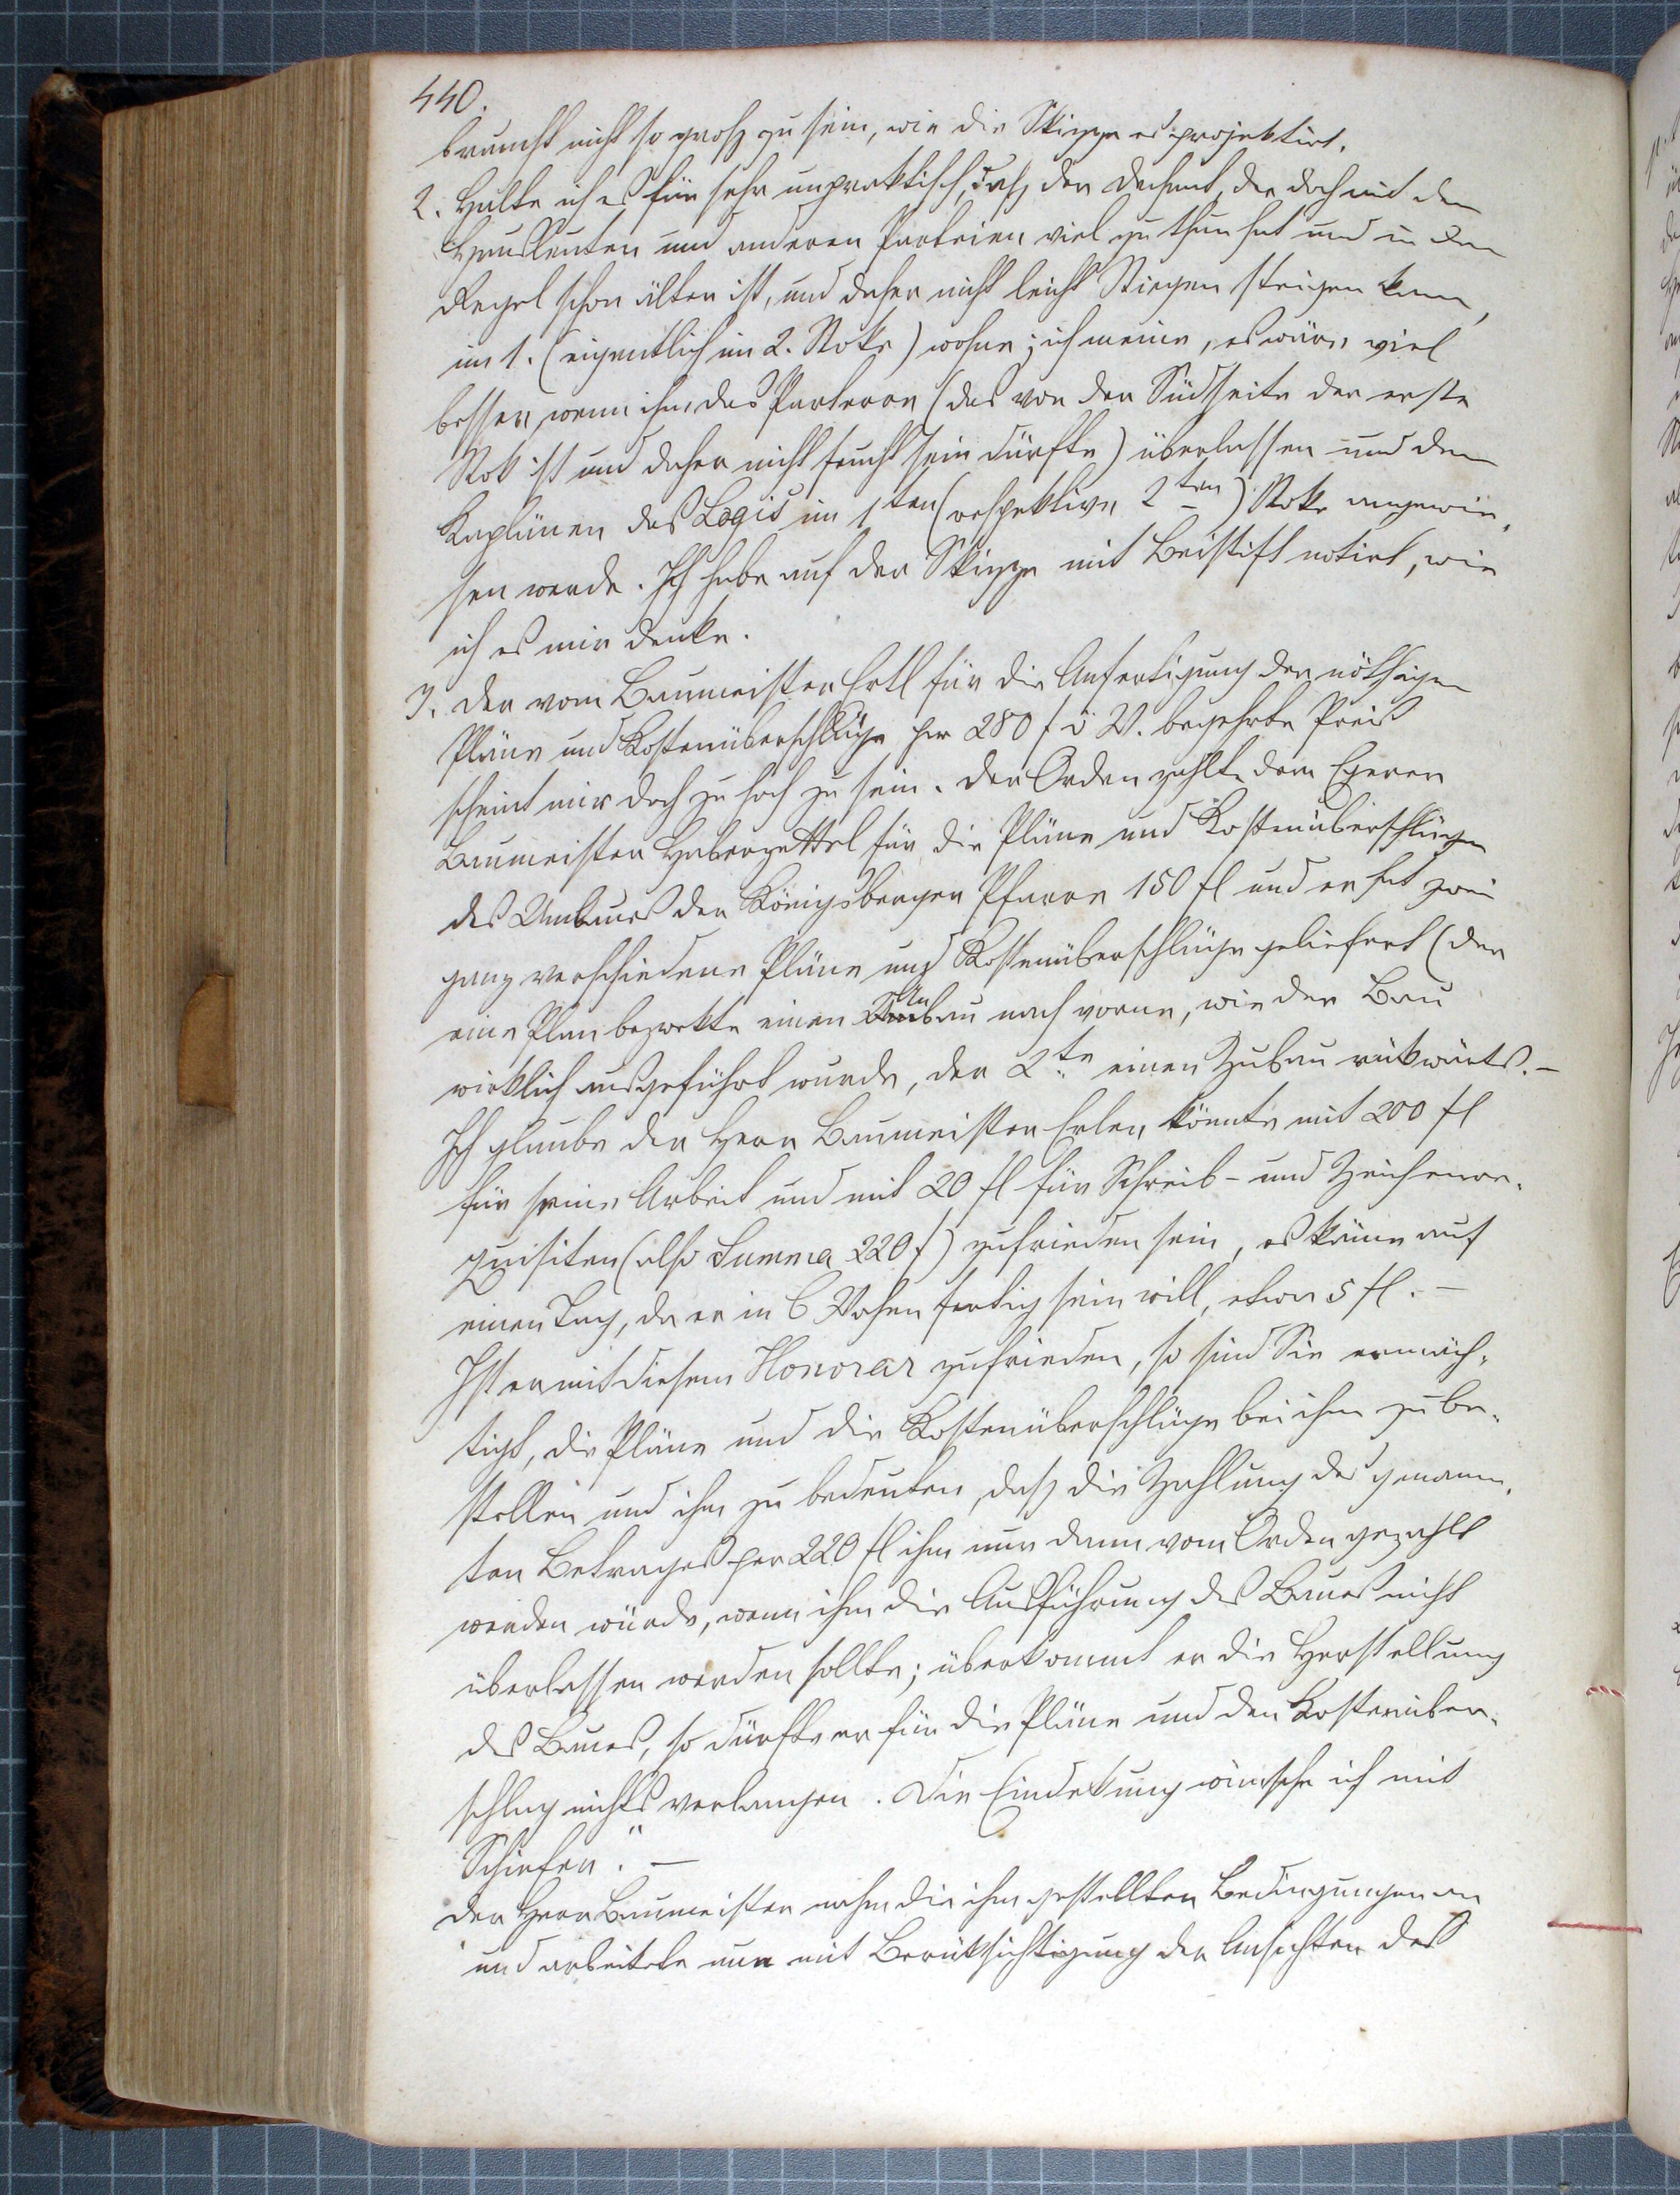 440.
braucht nicht so groß zu sein, wie die Skizze es projektirt.
2. Halte ich es für sehr unpraktisch, daß der Dechant, der doch mit den
Hausleuten und anderen Parteien viel zu thun hat und in der
Regel schon älter ist, und daher nicht leicht Stiegen steigen kann,
im 1. (eigentlich im 2. Stoke) wohne; ich meine, es wäre viel
besser, wenn ihm das Parterre (das von der Südseite der erste
Stok ist und daher nicht feucht sein dürfte) überlassen und den
Kaplänen das Logis im 1ten (respektive 2ten) Stoke angewie-
sen werde. Ich habe auf der Skizze mit Bleistift notirt, wie
ich es mir denke.
3. Der vom Baumeister Ertl für die Anfertigung der nöthigen
Pläne und Kostenüberschläge per 280 f ö W. begehrte Preis
scheint mir doch zu hoch zu sein. Der Orden zahlte dem Egerer
Baumeister Haberzettel für die Pläne und Kostenüberschläge
des Umbaues der Königsberger Pfarre 150 fl und er hat zwei
ganz verschiedene Pläne und Kostenüberschläge geliefert (der
eine Plan bezwekte einen Anbau nach vorne, wie der Bau
wirklich ausgeführt wurde, der 2te einen Zubau rükwärts. –
Ich glaube der Herr Baumeister könnte mit 200 fl
für seine Arbeit und mit 20 fl für Schreib- und Zeichenre-
quisiten (also Summa 220 f) zufrieden sein, es käme auf
einen Tag, da er in 6 Wochen fertig sein will, etwa 5 fl. –
Ist er mit diesem Honorar zufrieden, so sind Sie ermäch-
tigt, die Pläne und die Kostenüberschläge bei ihm zu be-
stellen und ihm zu bedeuten, daß die Zahlung des genann-
ten Betrages per 220 fl ihm nur dann vom Orden gezahlt
werden würde, wenn ihm die Ausführung des Baues nicht
überlassen werden sollte; überkommt er die Herstellung
des Baues, so dürfte er für die Pläne und den Kostenüber-
schlag nichts verlangen. Die Eindekung wünsche ich mit
Schiefer." –
Der Herr Baumeister nahm die ihm gestellten Bedingungen an
und arbeitete nun mit Berüksichtigung der Ansichten des